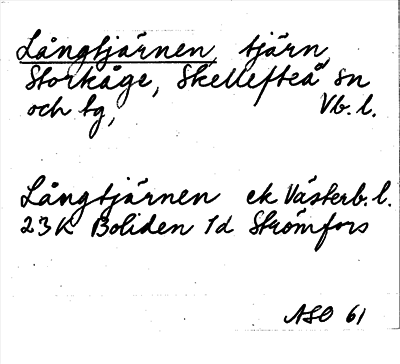 Långtjärnen, tjärn,
Storkåge, Skellefteå sn
och tg, Vb. l.
Långtjärnen ek Västerb. l.
23K Boliden 1d Strömfors
ASO 61